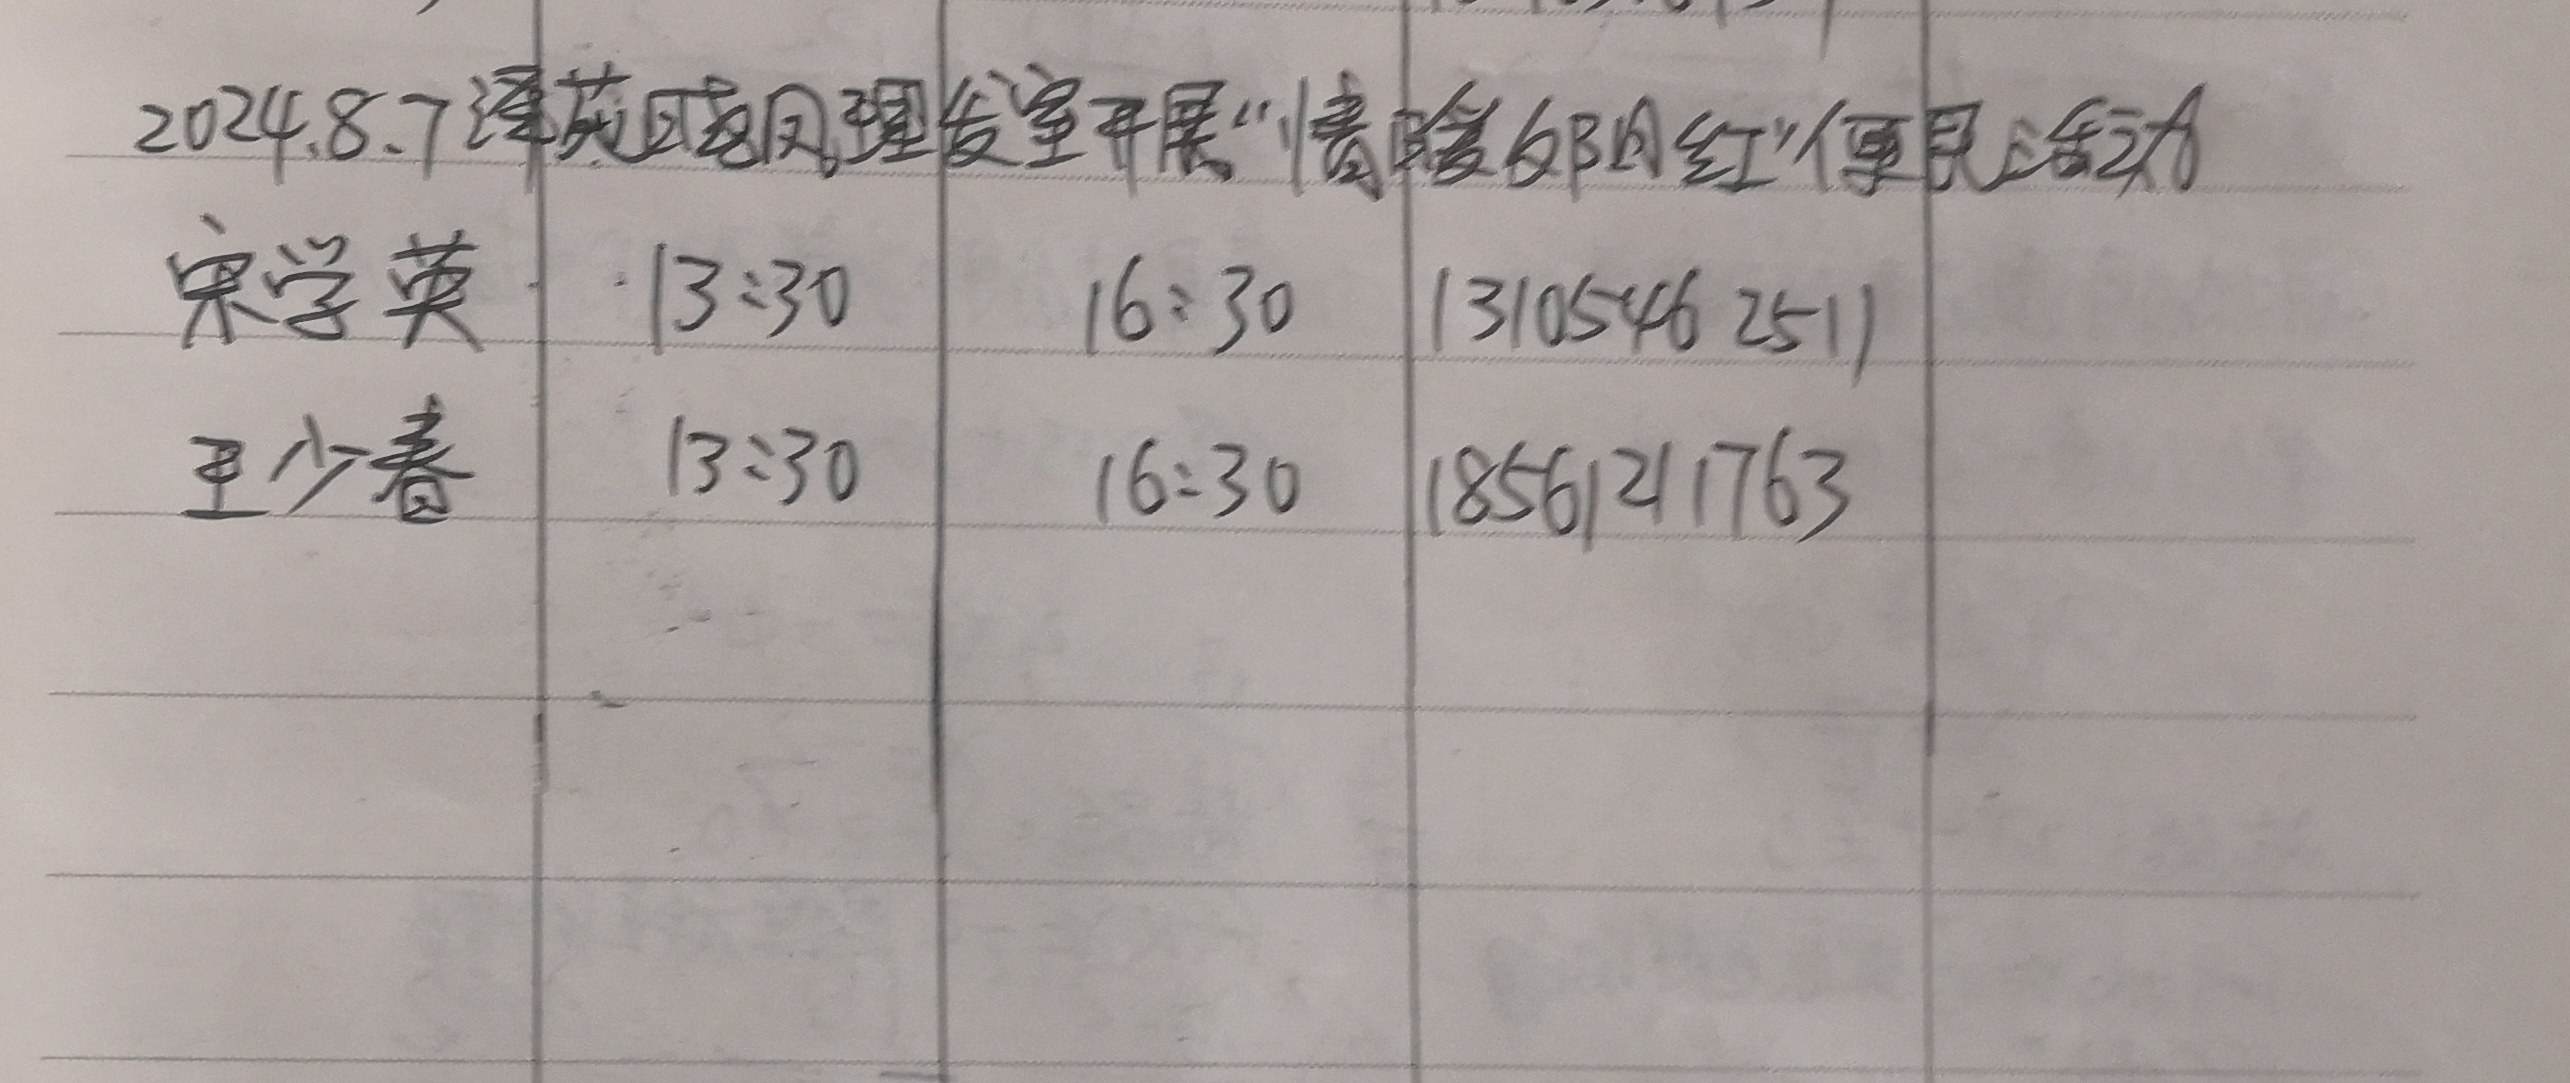 2024.8.7泽苑晓凤理发室开展“情暖夕阳红”便民活动
宋学英 13:30 16:30 13105462511
王少春 13:30 16:30 18561211763